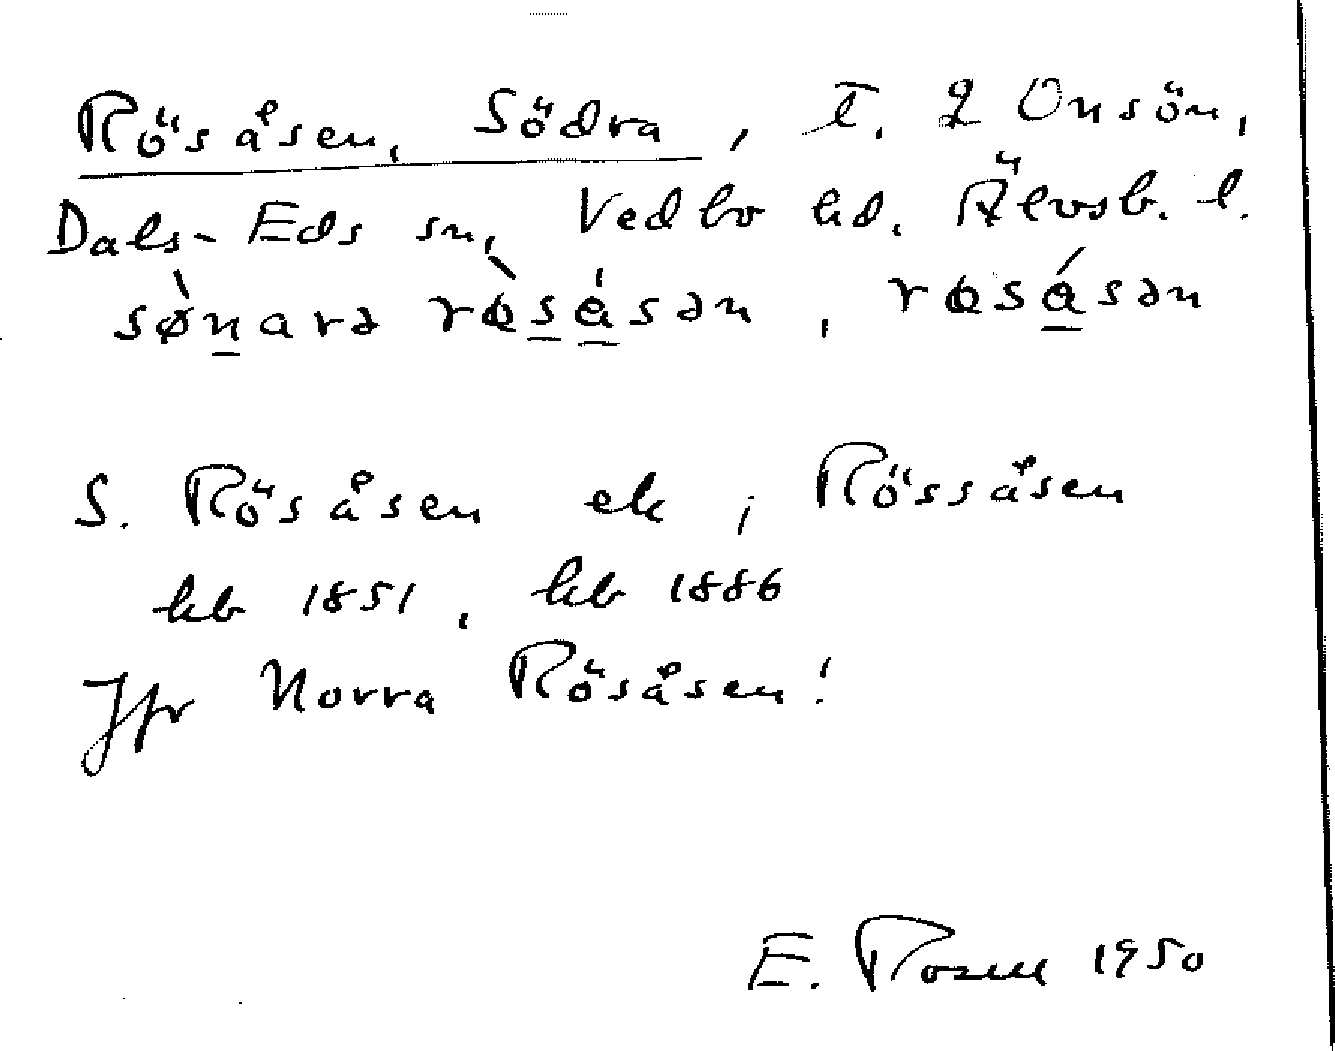 Rösåsen, Södra, t. 2 Onsön,
Dals-Eds sn, Vedbo hd. Älvsb. l.
sø̀narə rɵ̀sǻsən, rɵsǻsən
S. Rösåsen ek; Rössåsen
kb 1851, kb 1886
Jfr Norra Rösåsen!
E. Rosell 1950